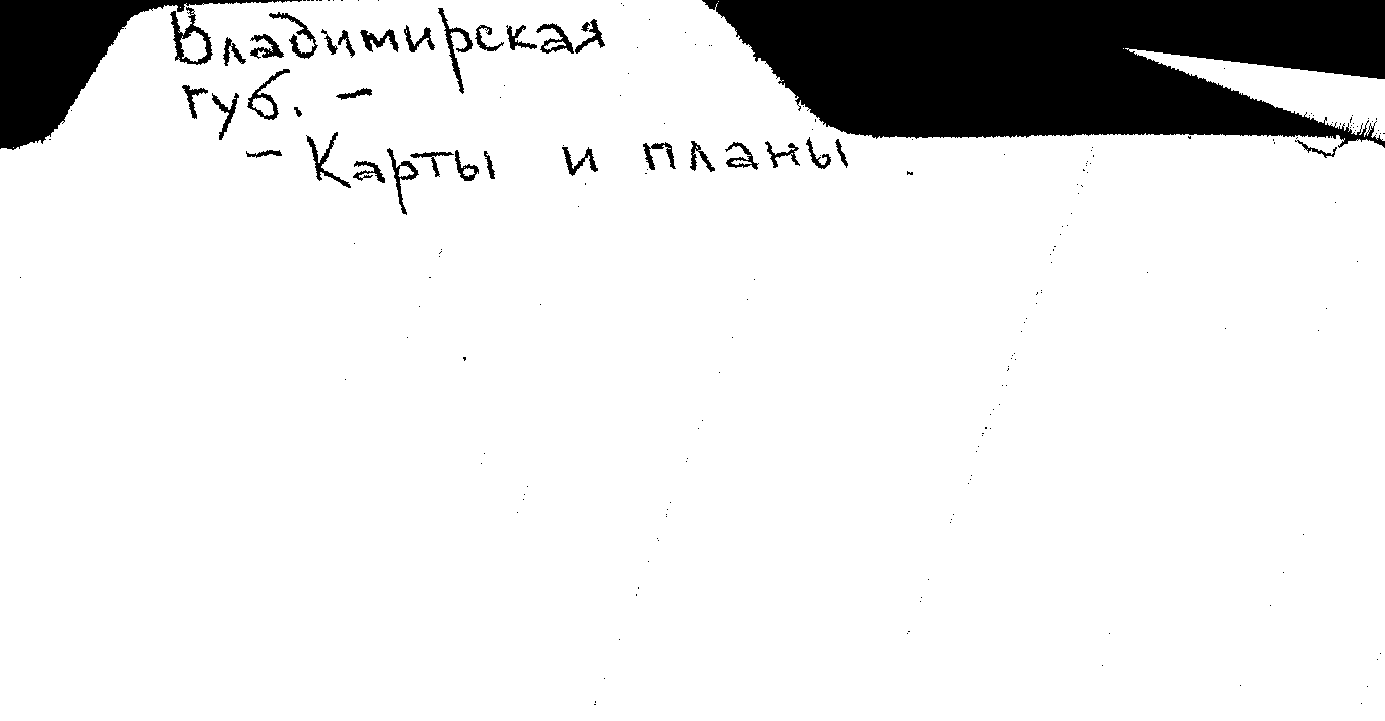 Владимирская
губ. -
- Карты и планы